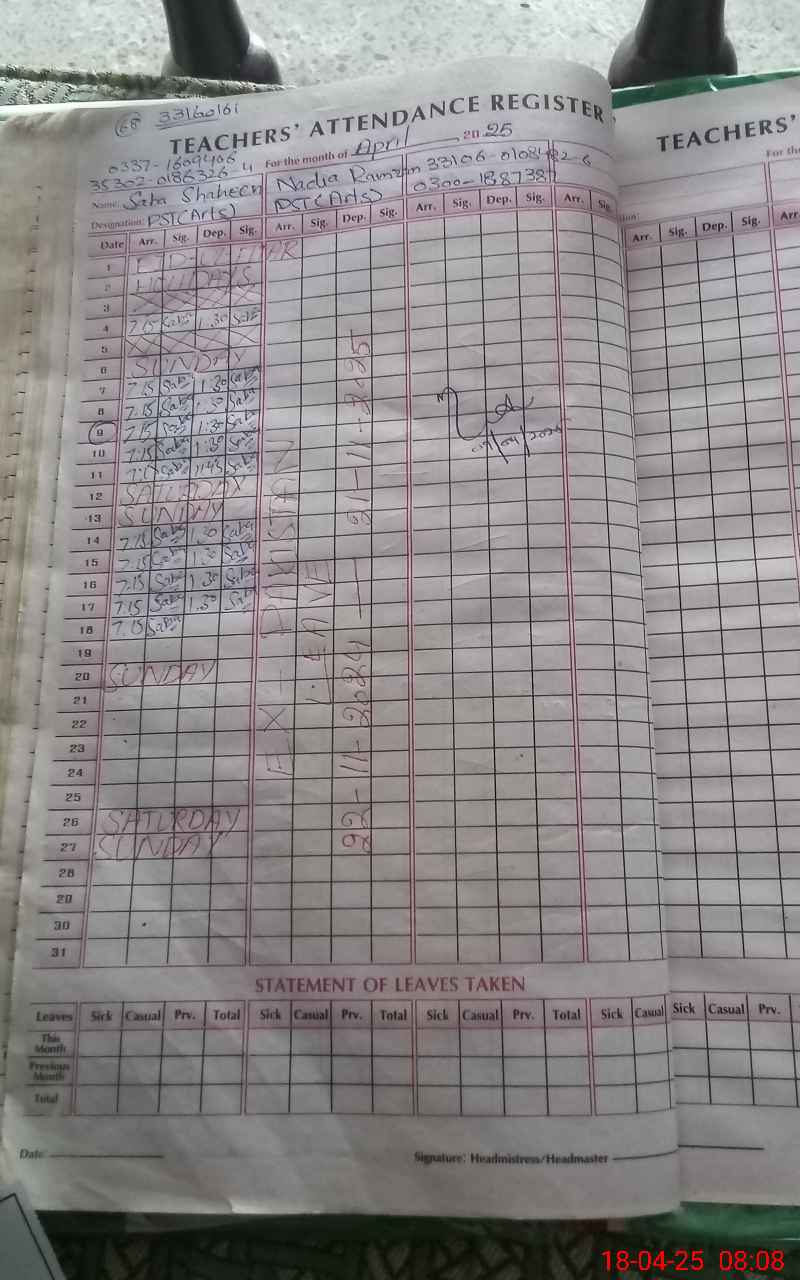 68 33160161
TEACHERS' ATTENDANCE REGISTER
For the month of April 2025
0337-1609406
35302-0186326-4
Name: Saba Shaheen Nadia Ramzan 33106-0108482-6
Designation: PST(Arts) PST(Arts) 0300-1887387
Date Arr. Sig. Dep. Sig. Arr. Sig. Dep. Sig. Arr. Sig. Dep. Sig. Arr. Sig.
1 EID-UL-FITAR
2 HOLIDAYS
3
4 7.15 Saba 1.30 Saba
5
6 SUNDAY
7 7.15 Saba 1.30 Saba
8 7.15 Saba 1.30 Saba
9 7.15 Saba 1.30 Saba
10 7.15 Saba 1.30 Saba
11 Saba 1.45 Saba
12 SATURDAY
13 SUNDAY
14 7.15 Saba 1.30 Saba
15 7.15 Saba 1.30 Saba
16 7.15 Saba 1.30 Saba
17 7.15 Saba 1.30 Saba
18 7.15 Saba
19
20 SUNDAY
21
22
23
24
25
26 SATURDAY
27 SUNDAY
28
29
30
31
EX-PAKISTAN
LEAVE
22-11-2024 — 21-11-2025
STATEMENT OF LEAVES TAKEN
Leaves Sick Casual Prv. Total Sick Casual Prv. Total Sick Casual Prv. Total Sick Casual
This Month
Previous Month
Total
Date:
Signature: Headmistress/Headmaster
TEACHERS'
For the
Arr. Sig. Dep. Sig. Arr.
Sick Casual Prv.
18-04-25 08:08